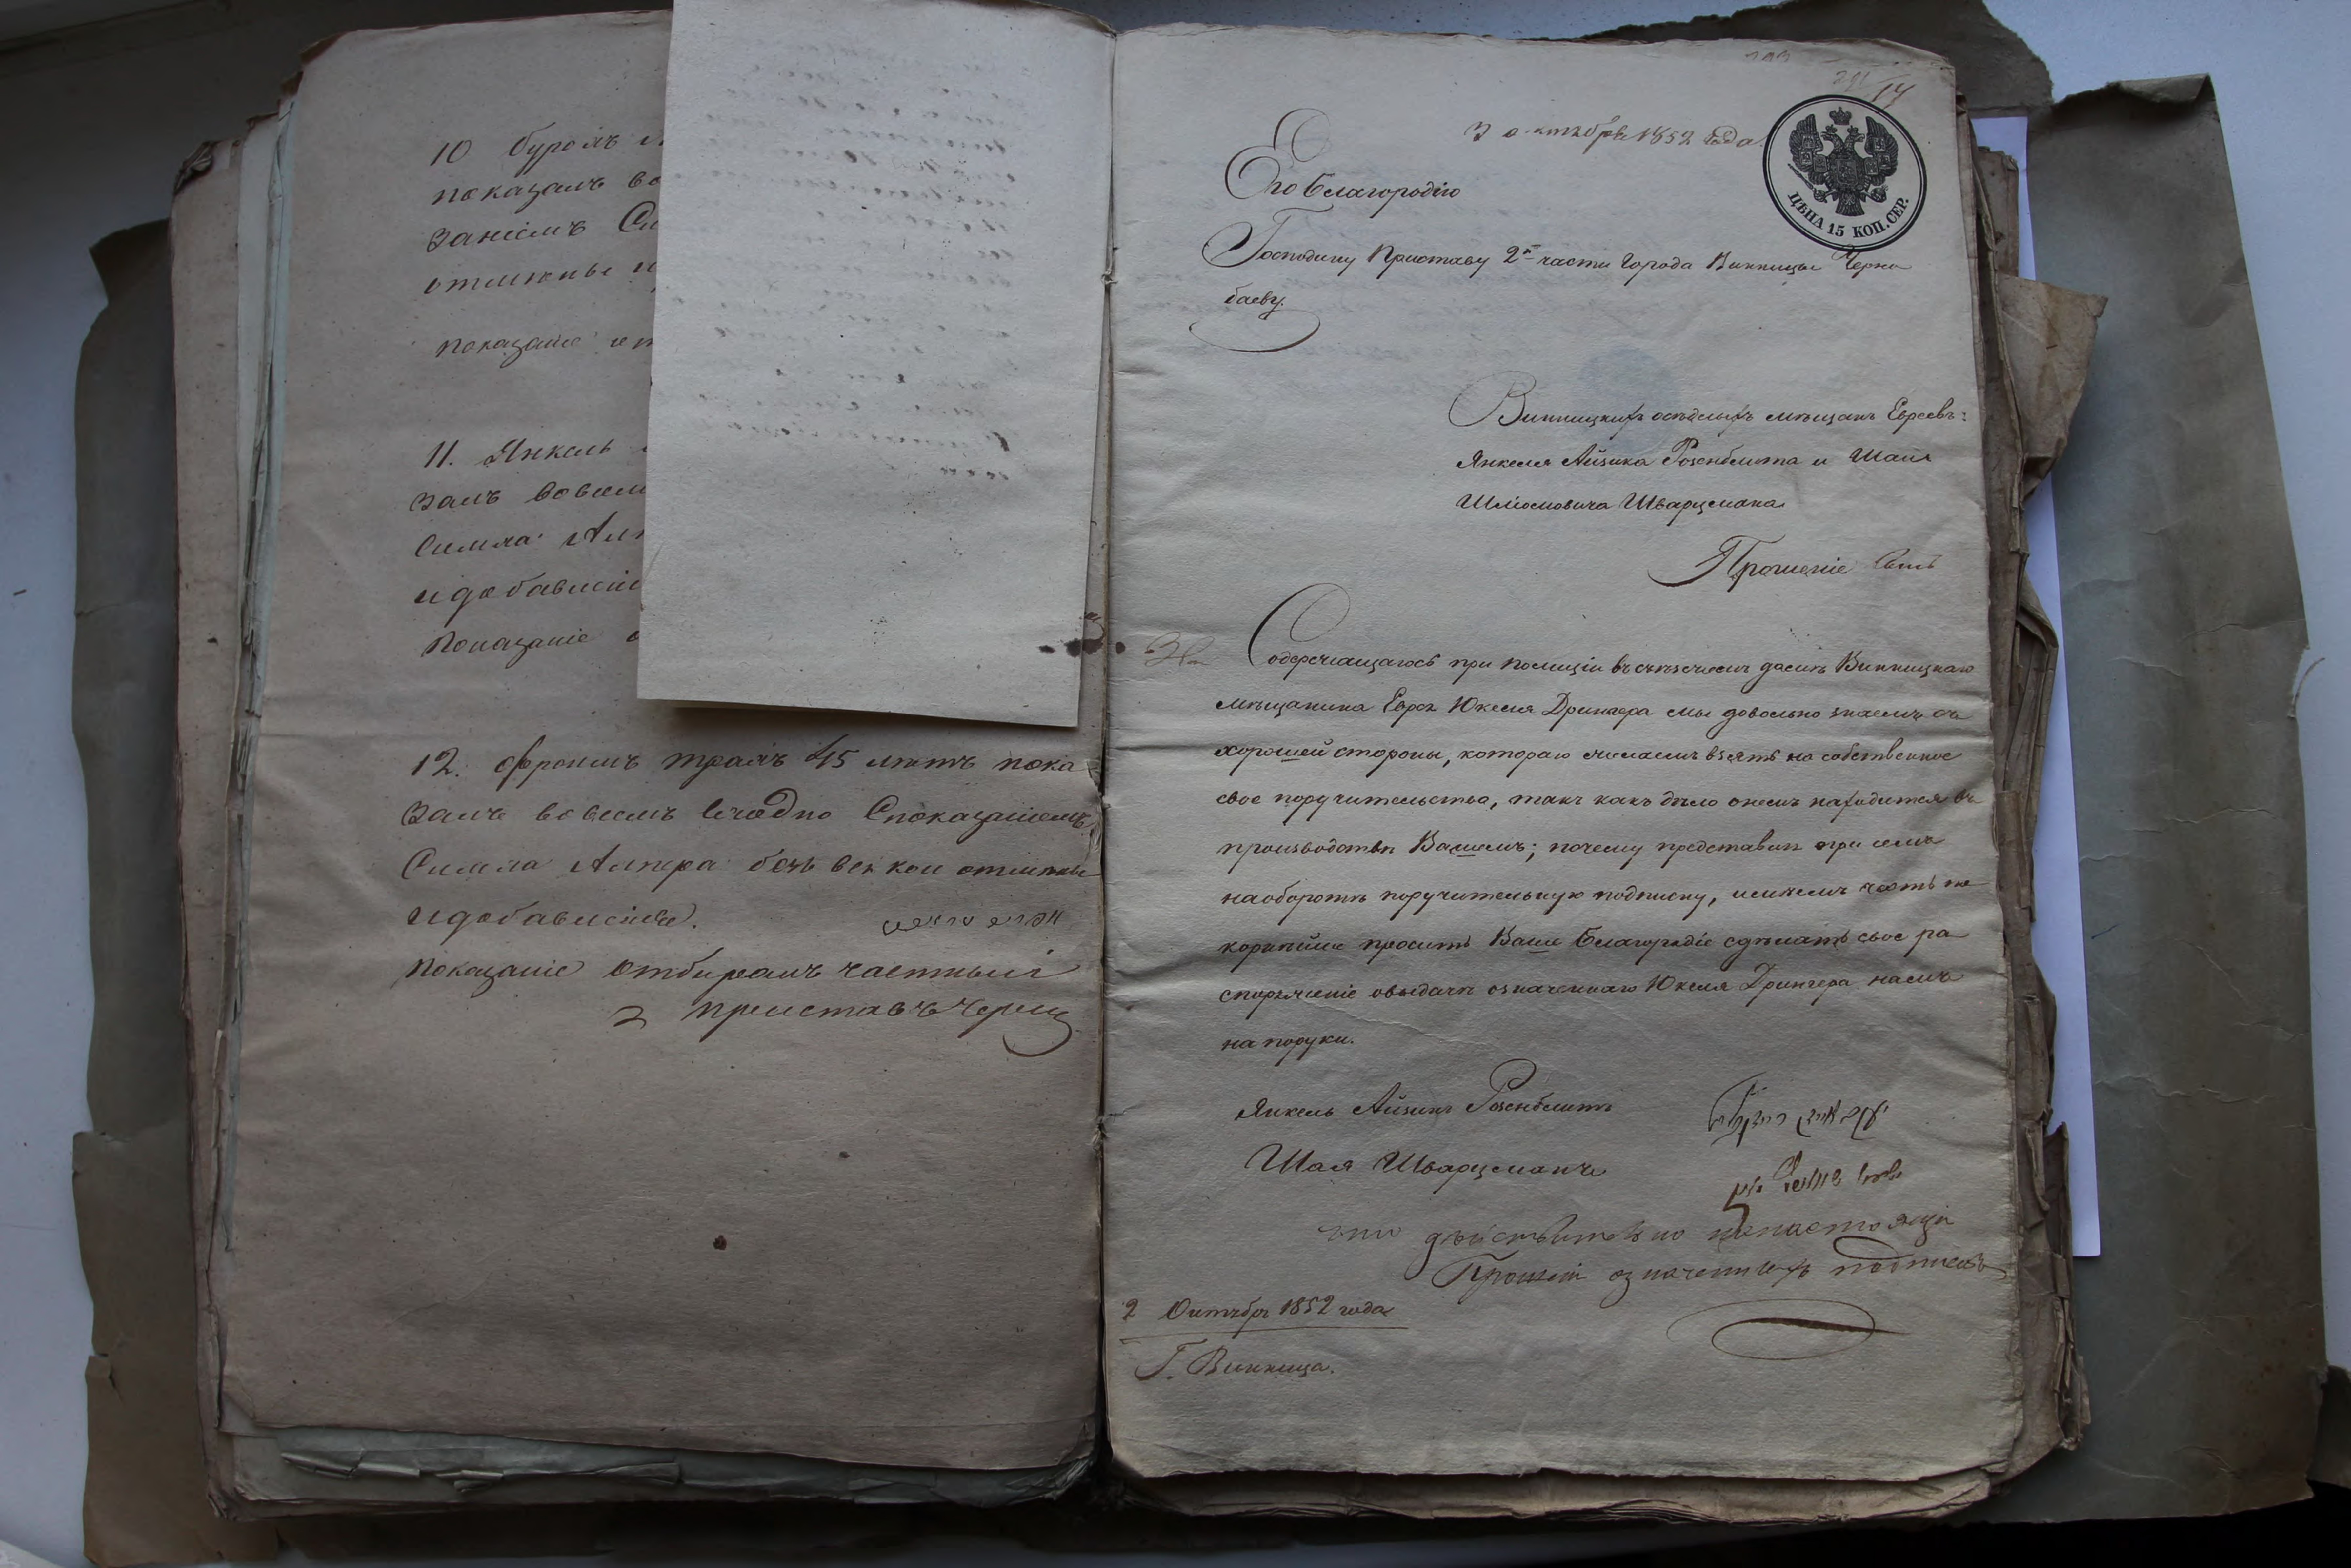 10
показалъ во
заніемъ Си
отмѣны и
показаніе от
11. Янкель
залъ вовсем
Симха Алп
и добавленіи
показаніе о
12. Фроимъ 45 лѣтъ пока
залъ вовсемъ сходно Споказаніемъ
Симха Алпера безъ всякои отмѣны
и добавленіи.
показаніе отбиралъ частный
приставъ
14
3 октября 1852 года
ЦѢНА 15 КОП. СЕР.
Его Благородію
Господину Приставу 2й части Города Винницы Черно
баеву.
Винницкихъ осѣдлыхъ мѣщанъ Евреевъ:
Янкеля Айзика Розенблита и Шаи
Шліомовича Шварцмана
Прошеніе
Содержащагося при полиціи въ съѣзжемъ домѣ Винницкаго
мѣщанина Еврея Юкеля Дрингера мы довольно знаемъ съ
хорошей стороны, котораго желаемъ взять на собственное
свое поручительство, такъ какъ дѣло онемъ находится въ
производствѣ Вашемъ; почему представивъ при семъ
наоборотѣ поручительную подписку, имѣемъ честь по
корнѣйше просить Ваше Благородіе сдѣлать свое ра
споряженіе овыдачѣ означеннаго Юкеля Дрингера намъ
на поруки.
Янкель Айзикъ Розенблитъ
Шая Шварцманъ
что дѣйствительно
означенныхъ
2 Октября 1852 года
Г. Винница.